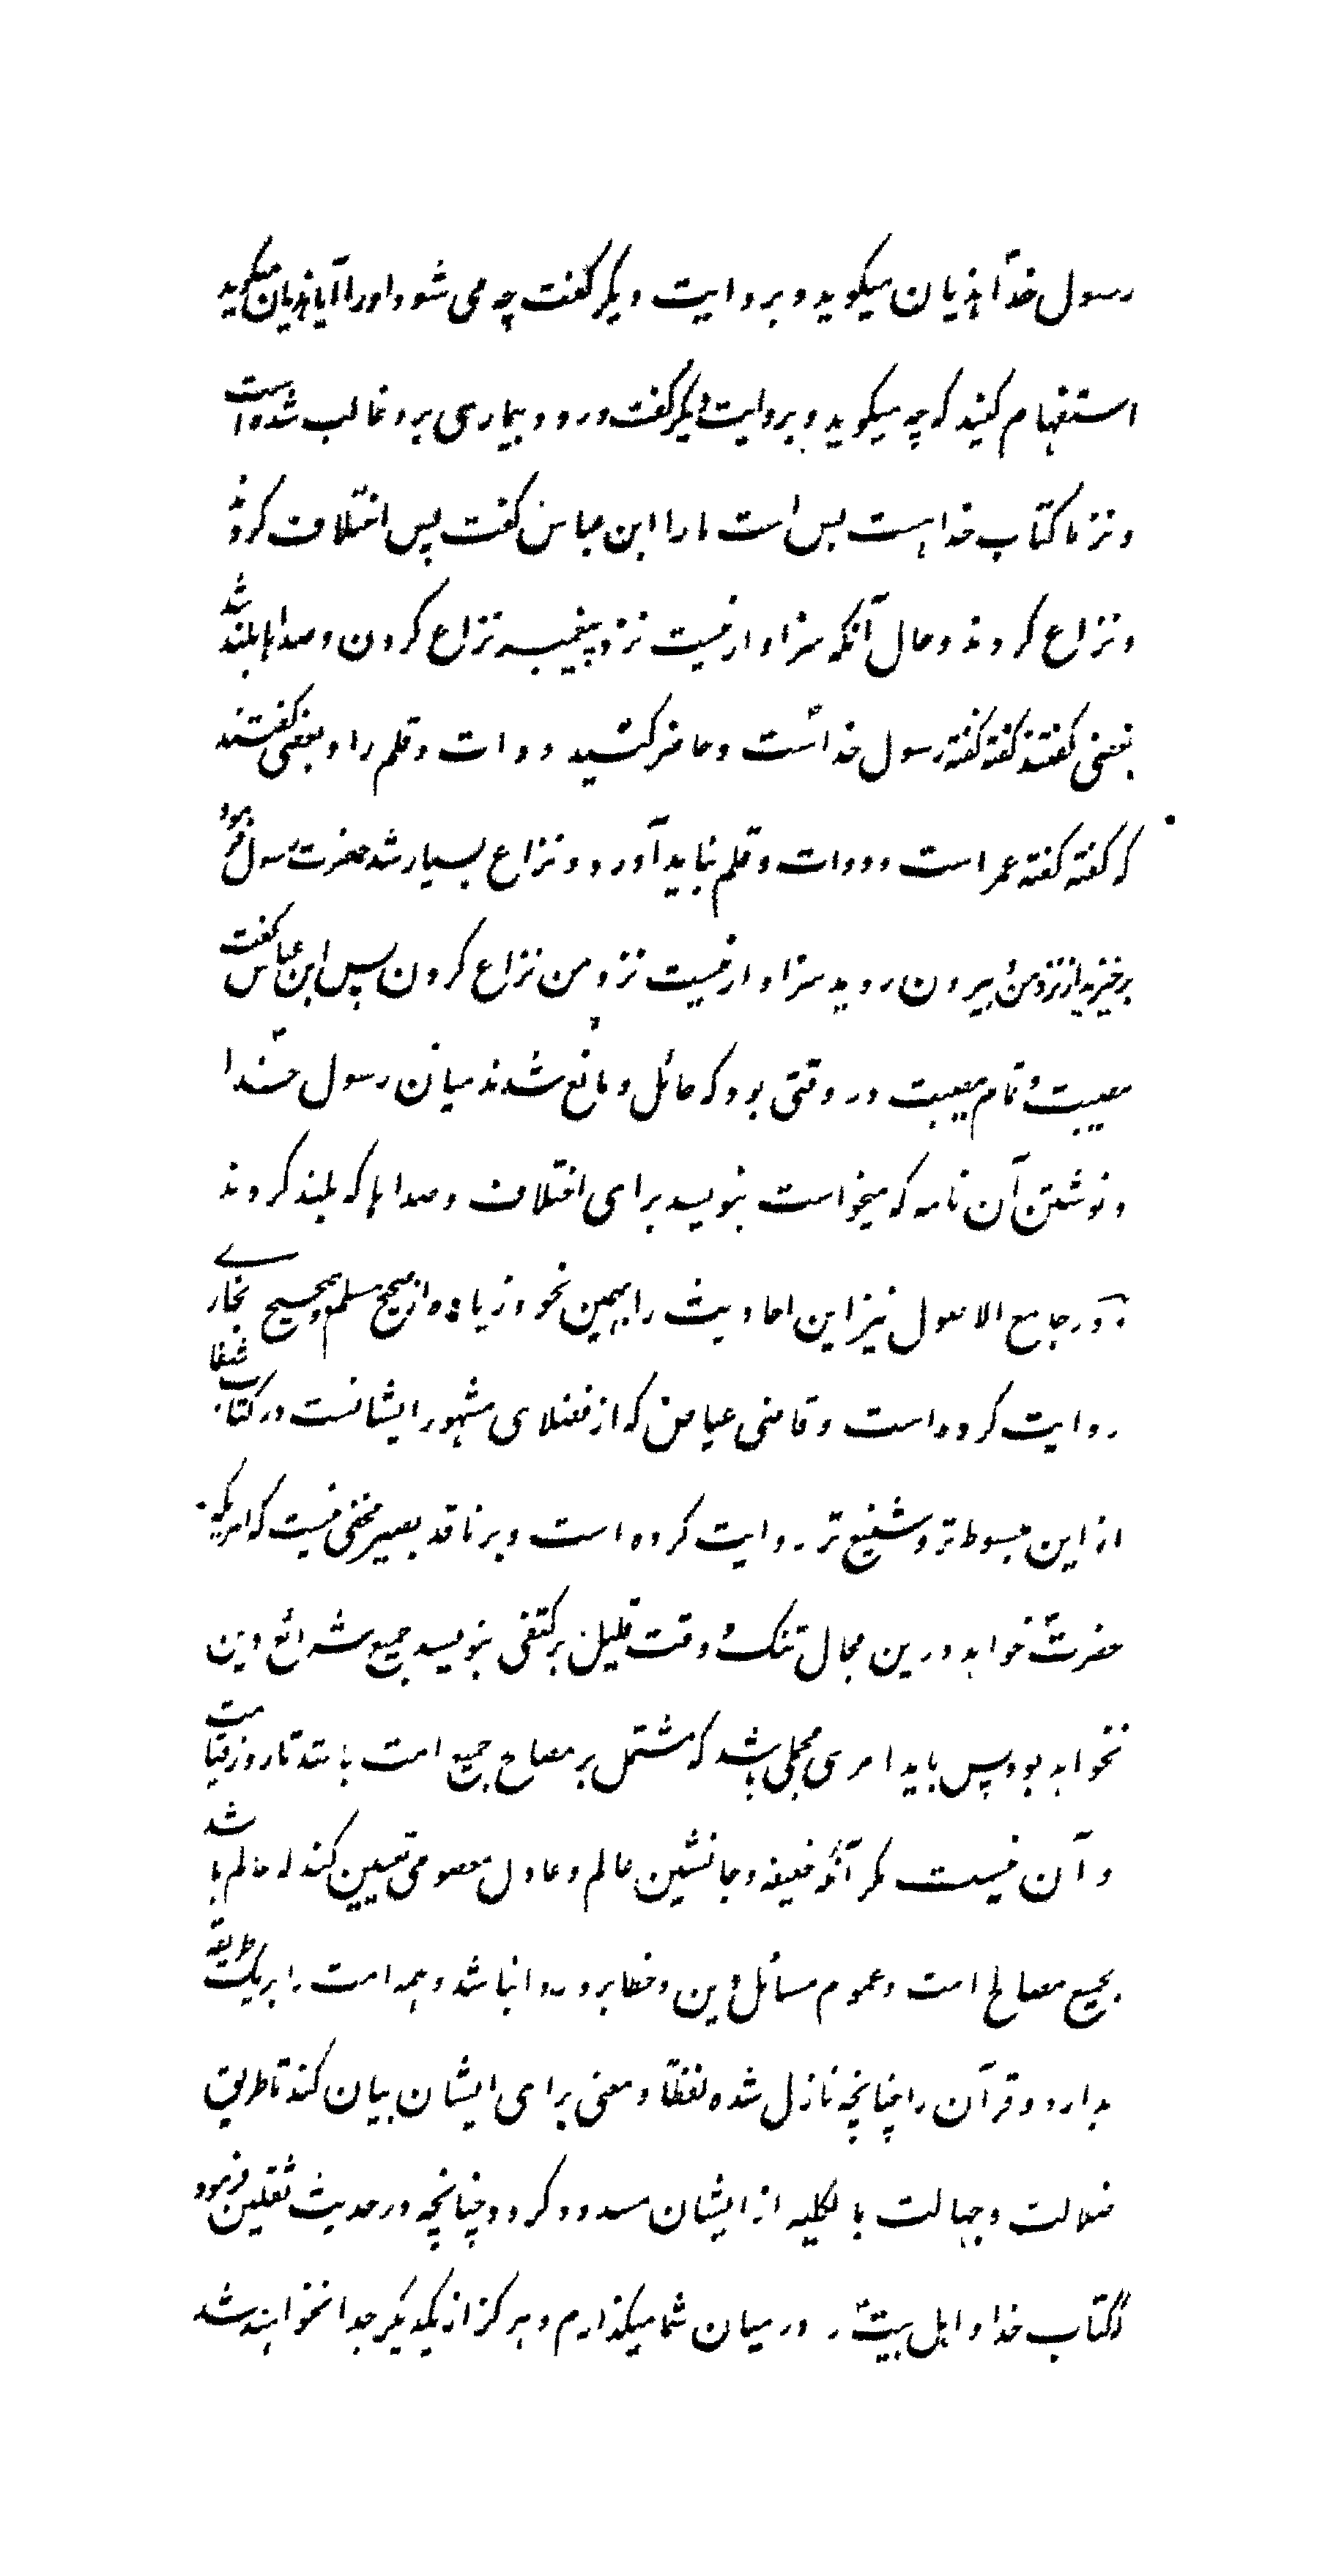 رسول خدا هذیان میکوید و بروایت دیکر کفت چه می شود اورا آیا هذیان میکوید
استفهام کنید که چه میکوید و بروایت دیکر کفت درد و بیماری برو غالب شده است
و نزد ما کتاب خدا هست بس است مارا ابن عباس کفت پس اختلاف کردند
و نزاع کردند و حال آنکه سزاوار نیست نزد پیغمبر نزاع کردن و صداها بلند شد
بعضی کفتند کفته کفته رسول خداست و حاضر کنید دوات و قلم را و بعضی کفتند
که کفته کفته عمر است و دوات و قلم نباید آورد و نزاع بسیار شد حضرت رسول فرمود
برخیزید از نزد من و بیرون روید سزاوار نیست نزد من نزاع کردن پس ابن عباس کفت
مصیبت و تمام مصیبت در وقتی بود که حائل و مانع شدند میان رسول خدا
و نوشتن آن نامه که میخواست بنویسد برای اختلاف و صداها که بلند کردند
و در جامع الاصول نیز این احادیث را بهمین نحو و زیاده از صحیح مسلم و صحیح بخاری
روایت کرده است و قاضی عیاض که از فضلای مشهور ایشانست در کتاب شفا
از این مبسوط تر و شنیع تر روایت کرده است و بر ناقد بصیر مخفی نیست که امریکه
حضرت خواهد درین مجال تنک و وقت قلیل بر کتفی بنویسد جمیع شرائع دین
نخواهد بود پس باید امری مجملی باشد که مشتمل بر مصالح جمیع امت باشد تا روز قیامت
و آن نیست مکر آنکه خلیفه و جانشین عالم و عادل معصومی تعیین کند که عالم باشد
بجمیع مصالح امت و عموم مسائل دین و خطا برو روا نباشد و همه امت را بر یک طریقه
بدارد و قرآن را چنانچه نازل شده لفظا و معنی برای ایشان بیان کند تا طریق
ضلالت و جهالت بالکلیه از ایشان مسدود کردد چنانچه در حدیث ثقلین فرمود
کتاب خدا و اهل بیت در میان شما میکذارم و هرکز از یکدیکر جدا نخواهند شد